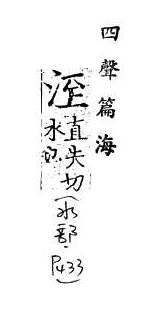 四聲篇海
洷
直失切
水
(水部 P433)